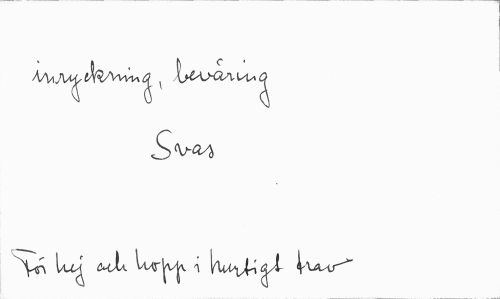 inryckning, beväring
Svas
För hej och hopp i hurtigt trav